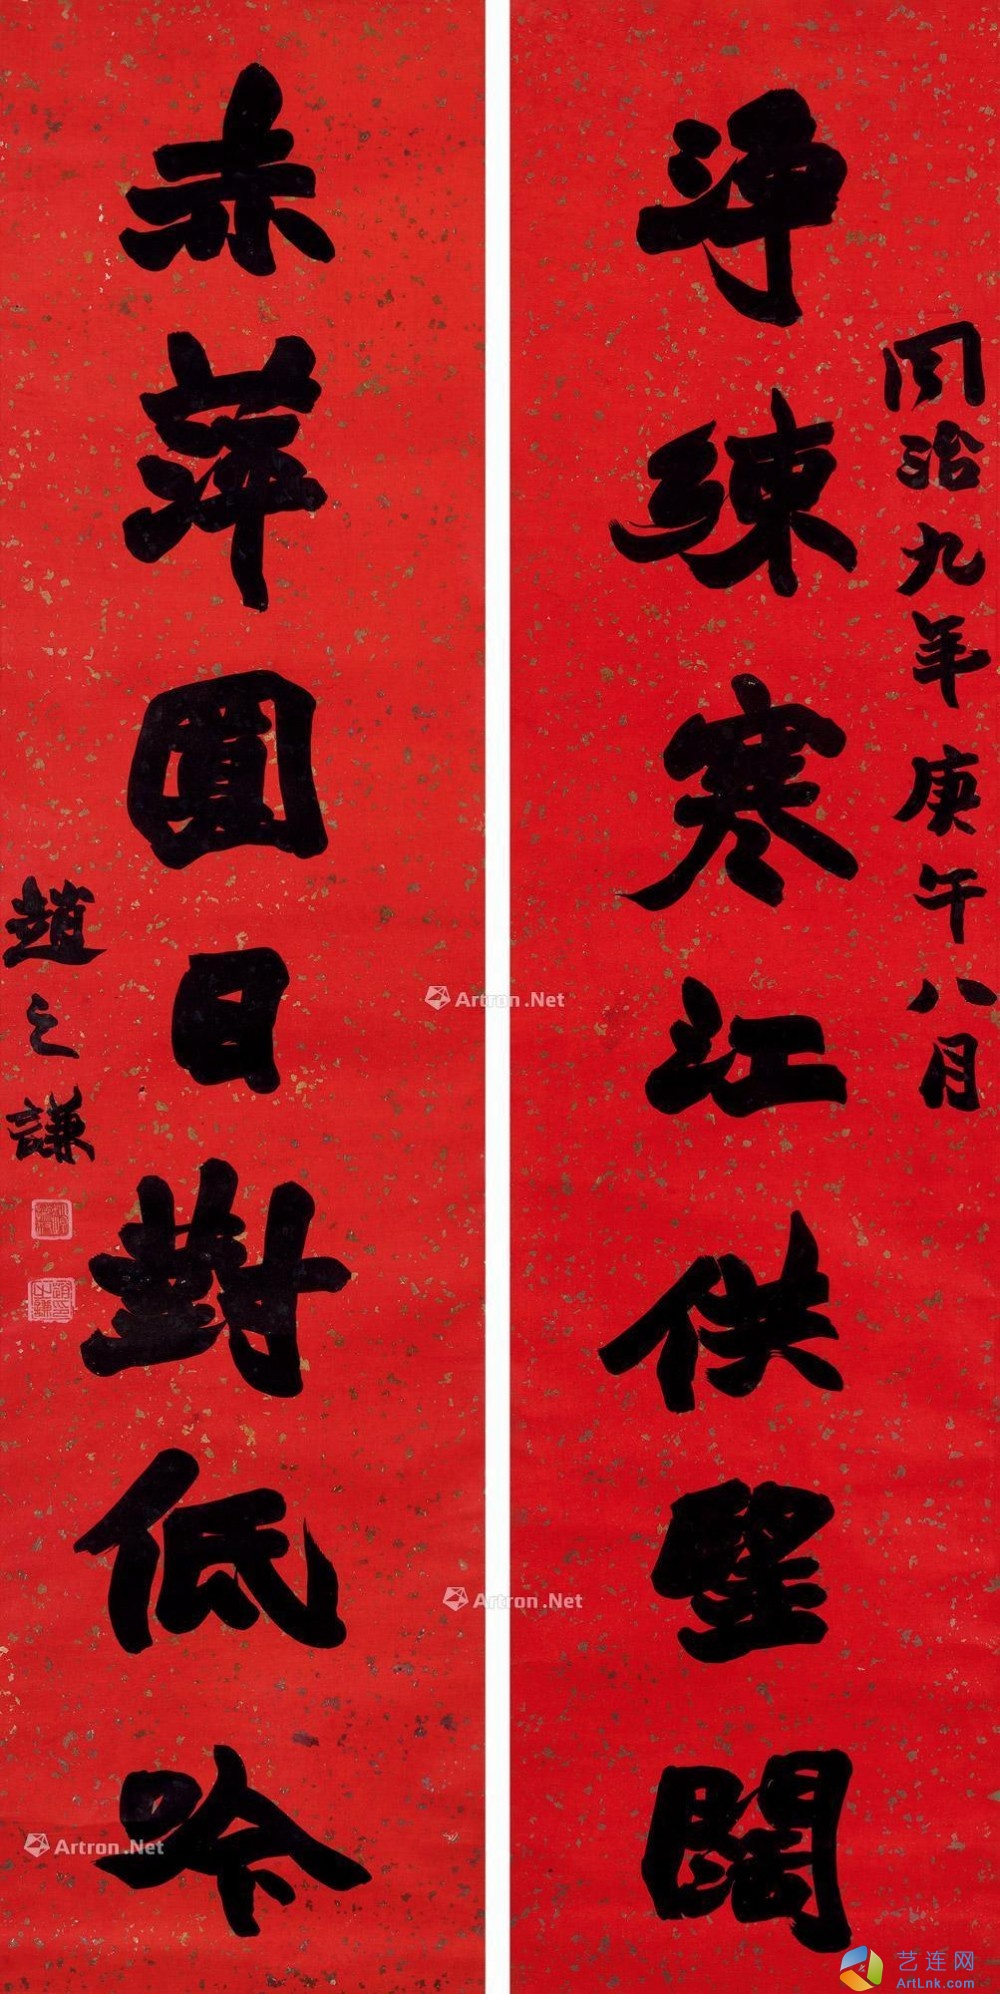 同治九年庚午八月
淨練寒江供望闊
赤萍圓日對低吟
趙之謙
趙之謙印
Artron.Net
Artron.Net
Artron.Net
艺连网
ArtLnk.com